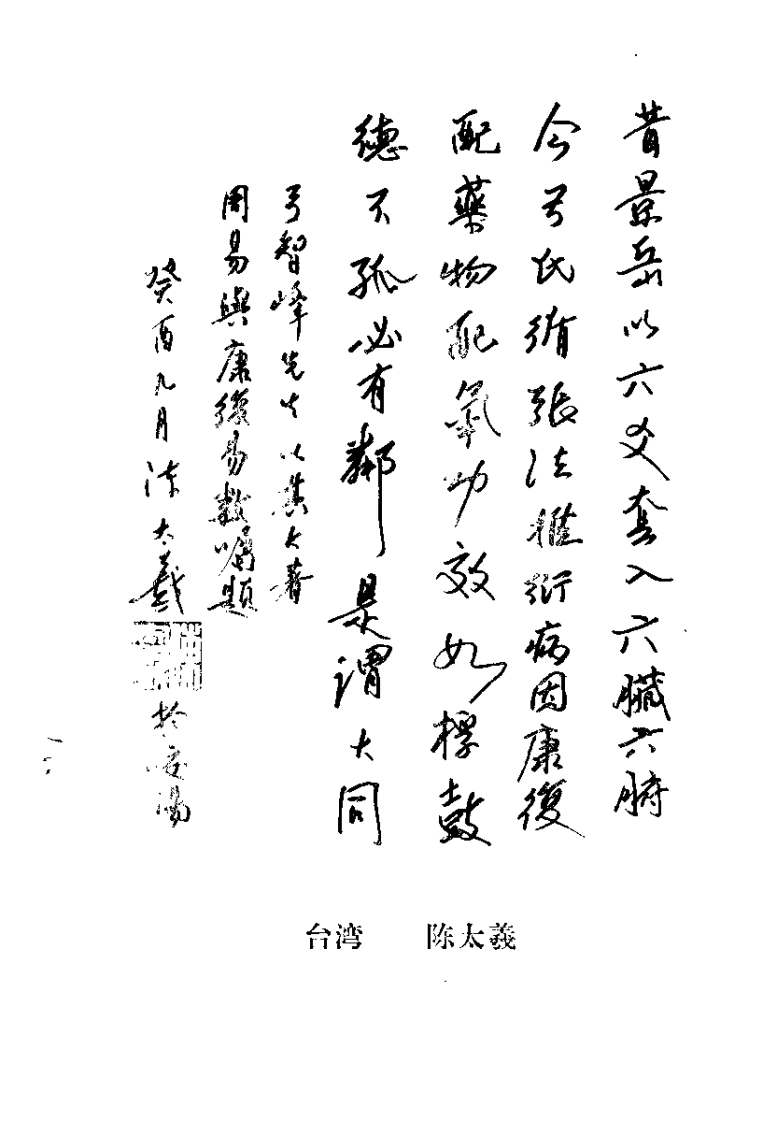 昔景岳以六爻套入六臟六腑
今弓氏循張法推衍病因康復
配藥物配氣功效如桴鼓
德不孤必有鄰是謂大同
弓智峰先生以其大著
周易與康復易數囑題
癸酉九月陈太羲
於安陽
台湾 陈太羲